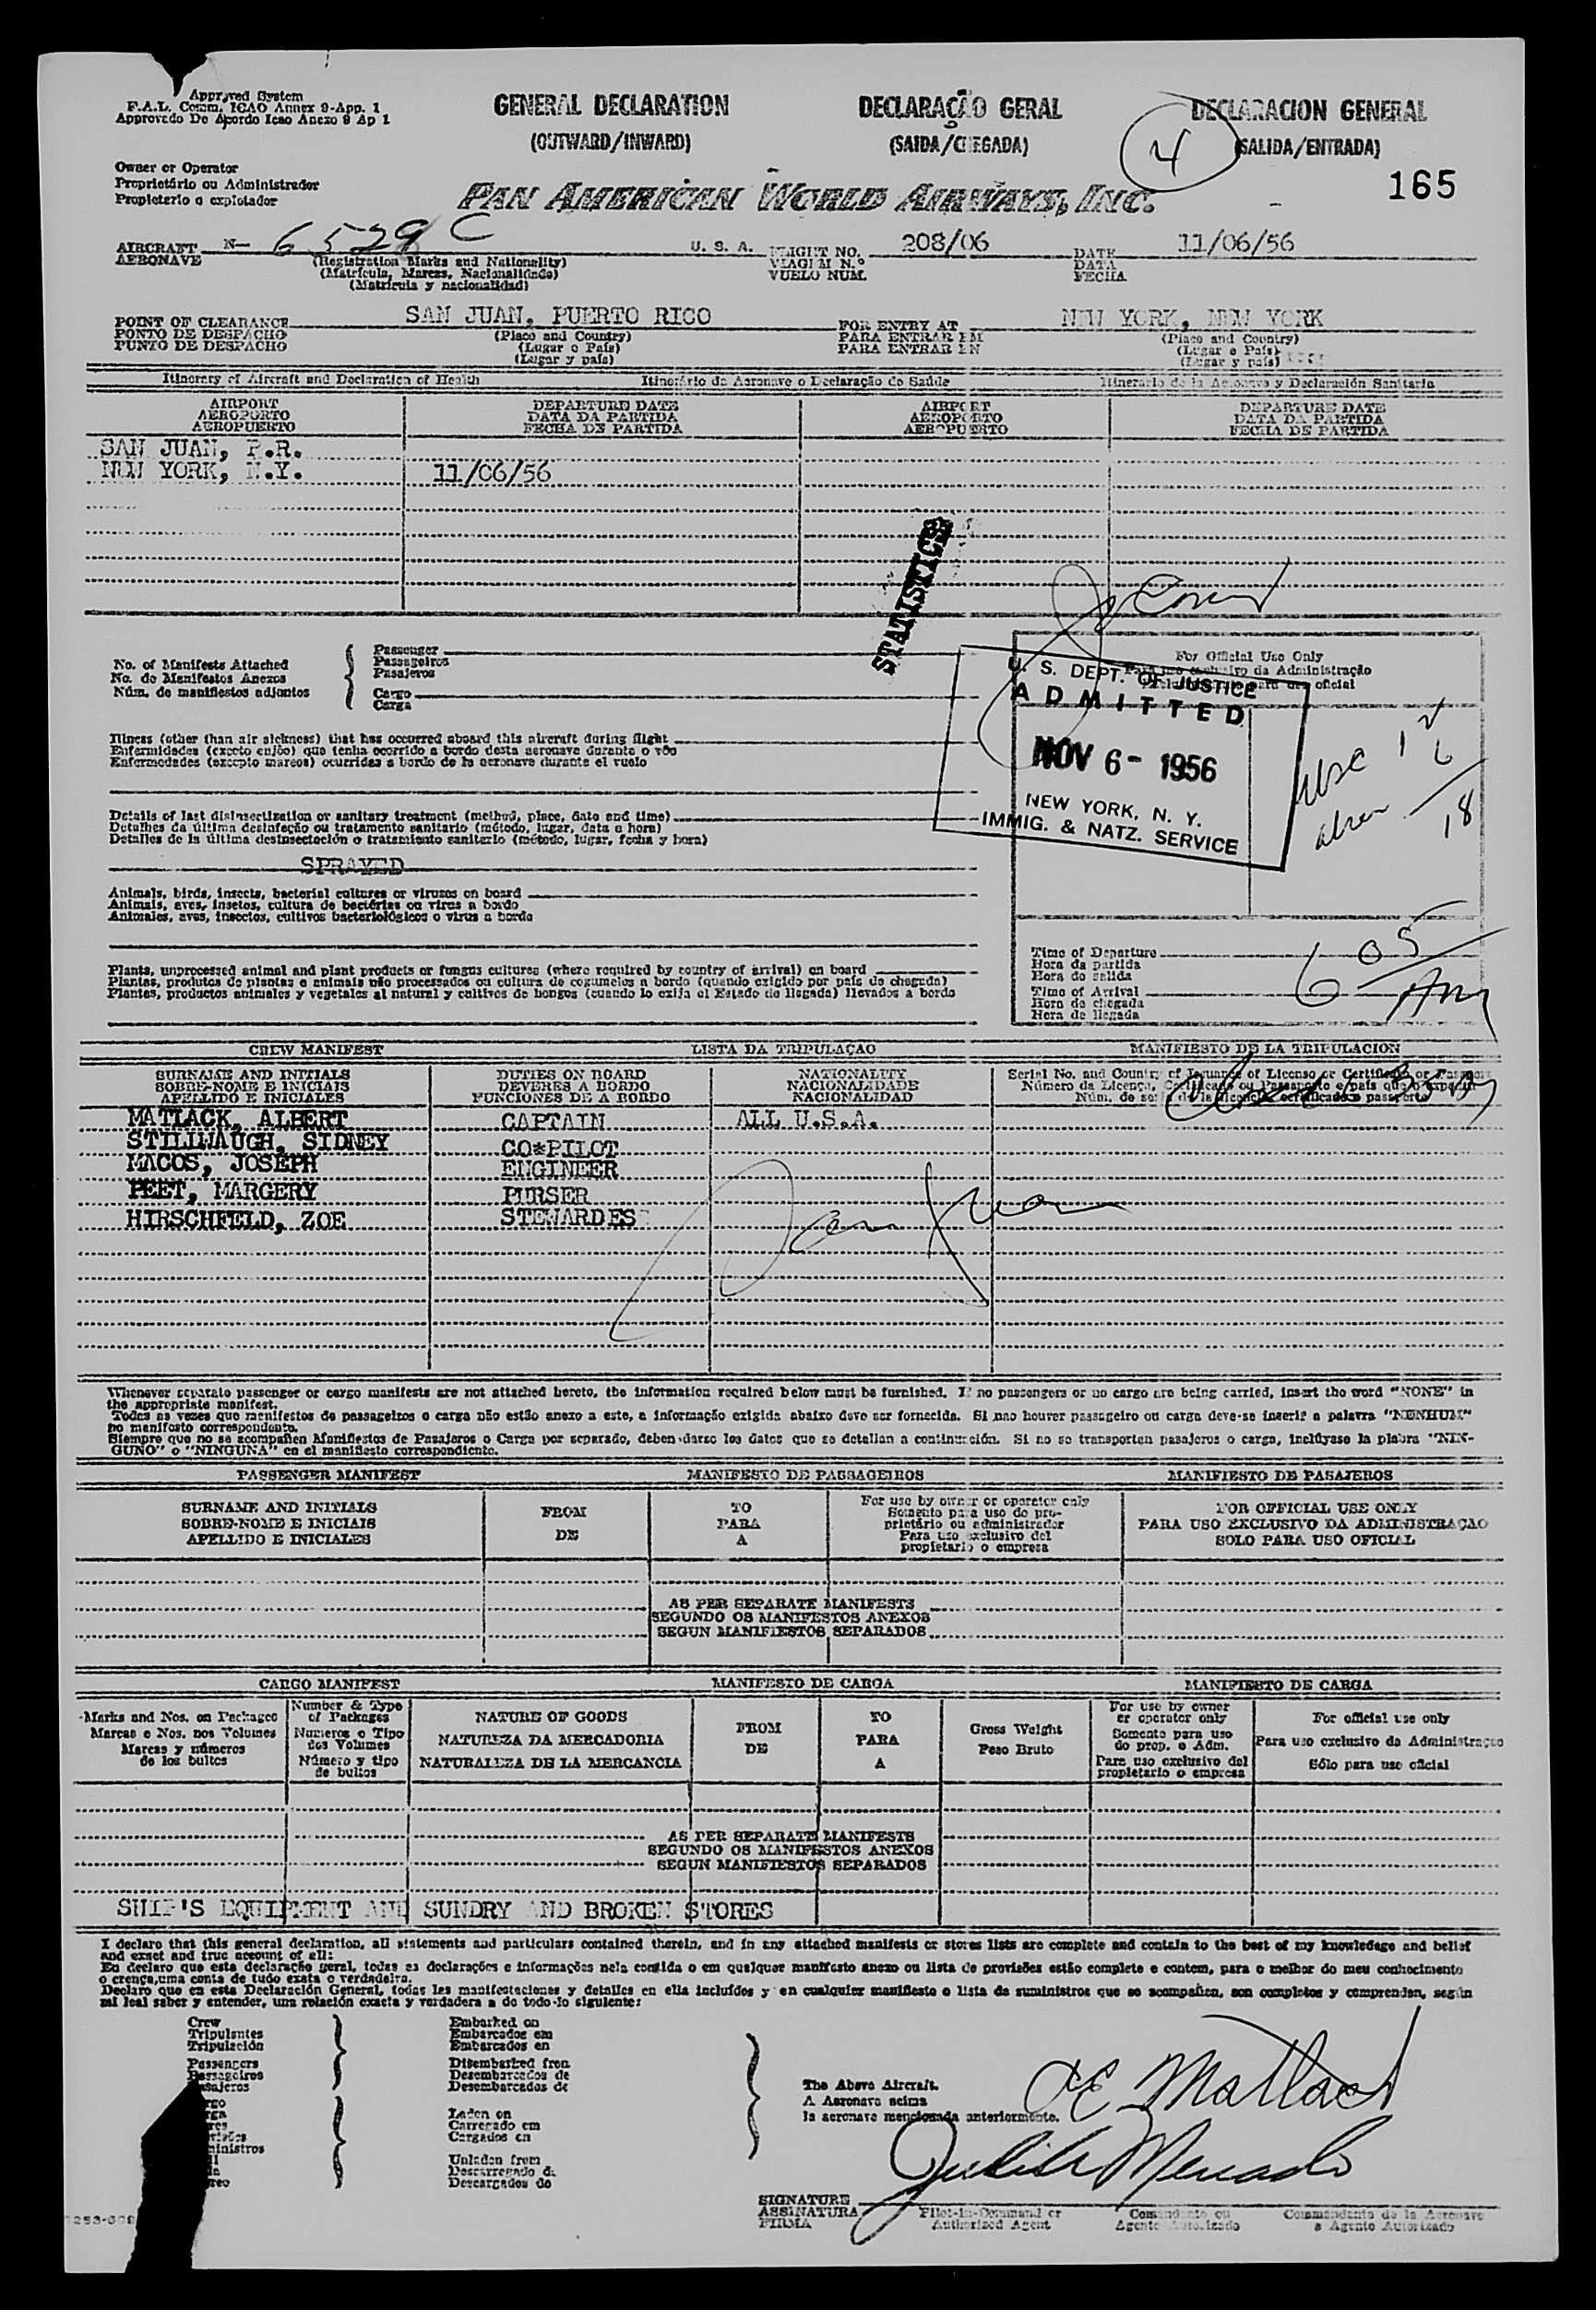 Approved System
F.A.L. Comm. ICAO Annex 9-App. 1
Approvado De Acordo Icao Anexo 9 Ap 1
GENERAL DECLARATION
(OUTWARD/INWARD)
DECLARAÇÃO GERAL
(SAIDA/CHEGADA)
DECLARACION GENERAL
(SALIDA/ENTRADA)
4
165
Owner or Operator
Proprietário ou Administrador
Propietario o explotador
PAN AMERICAN WORLD AIRWAYS, INC.
AIRCRAFT N- 6529 C U. S. A. FLIGHT NO. 208/06 DATE 11/06/56
AERONAVE (Registration Marks and Nationality) VIAGEM N.º DATA
(Matrícula, Marcas, Nacionalidade) VUELO NUM. FECHA
(Matrícula y nacionalidad)
POINT OF CLEARANCE SAN JUAN, PUERTO RICO FOR ENTRY AT NEW YORK, NEW YORK
PONTO DE DESPACHO (Place and Country) PARA ENTRAR EM (Place and Country)
PUNTO DE DESPACHO (Lugar e País) PARA ENTRAR EN (Lugar e País)
(Lugar y país) (Lugar y país)
Itinerary of Aircraft and Declaration of Health Itinerário da Aeronave e Declaração de Saúde Itinerario de la Aeronave y Declaración Sanitaria
AIRPORT DEPARTURE DATE AIRPORT DEPARTURE DATE
AEROPORTO DATA DA PARTIDA AEROPORTO DATA DA PARTIDA
AEROPUERTO FECHA DE PARTIDA AEROPUERTO FECHA DE PARTIDA
SAN JUAN, P.R.
NEW YORK, N.Y. 11/06/56
STATISTICS
No. of Manifests Attached
No. de Manifestos Anexos
Núm. de manifiestos adjuntos
Passenger
Passageiros
Pasajeros
Cargo
Carga
For Official Use Only
Para uso exclusivo da Administração
U. S. DEPT. OF JUSTICE
ADMITTED
NOV 6- 1956
NEW YORK, N. Y.
IMMIG. & NATZ. SERVICE
18
Illness (other than air sickness) that has occurred aboard this aircraft during flight
Enfermidades (exceto enjôo) que tenha ocorrido a bordo desta aeronave durante o vôo
Enfermedades (excepto mareos) ocurridas a bordo de la aeronave durante el vuelo
Details of last disinsectization or sanitary treatment (method, place, date and time)
Detalhes da última desinfeção ou tratamento sanitario (método, lugar, data e hora)
Detalles de la última desinsectación o tratamiento sanitario (método, lugar, fecha y hora)
SPRAYED
Animals, birds, insects, bacterial cultures or viruses on board
Animais, aves, insetos, cultura de bactérias ou virus a bordo
Animales, aves, insectos, cultivos bacteriológicos o virus a bordo
Plants, unprocessed animal and plant products or fungus cultures (where required by country of arrival) on board
Plantas, produtos de plantas e animais não processados ou cultura de cogumelos a bordo (quando exigido por país de chegada)
Plantas, productos animales y vegetales al natural y cultivos de hongos (cuando lo exija el Estado de llegada) llevados a bordo
Time of Departure
Hora da partida
Hora de salida
Time of Arrival
Hora da chegada
Hora de llegada
6 05 Am
CREW MANIFEST LISTA DA TRIPULAÇAO MANIFIESTO DE LA TRIPULACION
SURNAME AND INITIALS DUTIES ON BOARD NATIONALITY Serial No. and Country of Issuance of License or Certificate or Passport
SOBRE-NOME E INICIAIS DEVERES A BORDO NACIONALIDADE Número da Licença, Certificado ou Passaporte e país que o expediu
APELLIDO E INICIALES FUNCIONES DE A BORDO NACIONALIDAD Núm. de serie de la licencia, certificado o pasaporte
MATLACK, ALBERT CAPTAIN ALL U.S.A.
STILLWAUGH, SIDNEY CO*PILOT
MACOS, JOSEPH ENGINEER
PEET, MARGERY PURSER
HIRSCHFELD, ZOE STEWARDESS
San Juan
Whenever separate passenger or cargo manifests are not attached hereto, the information required below must be furnished. If no passengers or no cargo are being carried, insert the word "NONE" in
the appropriate manifest.
Todas as vezes que manifestos de passageiros e carga não estão anexo a este, a informação exigida abaixo deve ser fornecida. Si nao houver passageiro ou carga deve-se inserir a palavra "NENHUM"
no manifosto correspondente.
Siempre que no se acompañen Manifiestos de Pasajeros o Carga por separado, deben darse los datos que se detallan a continuación. Si no se transporten pasajeros o carga, inclúyase la plabra "NIN-
GUNO" o "NINGUNA" en el manifiesto correspondiente.
PASSENGER MANIFEST MANIFESTO DE PASSAGEIROS MANIFIESTO DE PASAJEROS
SURNAME AND INITIALS
SOBRE-NOME E INICIAIS
APELLIDO E INICIALES
FROM
DE
TO
PARA
A
For use by owner or operator only
Somento para uso do pro-
prietário ou administrador
Para uso exclusivo del
propietario o empresa
FOR OFFICIAL USE ONLY
PARA USO EXCLUSIVO DA ADMINISTRAÇÃO
SOLO PARA USO OFICIAL
AS PER SEPARATE MANIFESTS
SEGUNDO OS MANIFESTOS ANEXOS
SEGUN MANIFIESTOS SEPARADOS
CARGO MANIFEST MANIFESTO DE CARGA MANIFIESTO DE CARGA
Marks and Nos. on Packages
Marcas e Nos. nos Volumes
Marcas y números
de los bultos
Number & Type
of Packages
Numeros e Tipo
dos Volumes
Número y tipo
de bultos
NATURE OF GOODS
NATUREZA DA MERCADORIA
NATURALEZA DE LA MERCANCIA
FROM
DE
TO
PARA
A
Gross Weight
Peso Bruto
For use by owner
or operator only
Somento para uso
do prop. o Adm.
Para uso exclusivo del
propietario o empresa
For official use only
Para uso exclusivo da Administraçao
Sólo para uso oficial
AS PER SEPARATE MANIFESTS
SEGUNDO OS MANIFESTOS ANEXOS
SEGUN MANIFIESTOS SEPARADOS
SHIP'S EQUIPMENT AND SUNDRY AND BROKEN STORES
I declare that this general declaration, all statements and particulars contained therein, and in any attached manifests or stores lists are complete and contain to the best of my knowledge and belief
and exact and true account of all:
Eu declaro que esta declaração geral, todas as declarações e informações nela contida o em qualquer manifesto anexo ou lista de provisões estão complete e contem, para o melhor do meu conhocimento
o crença,uma conta de tudo exata e verdadeira.
Declaro que en esta Declaración General, todas las manifestaciones y detalles en ella incluídos y en cualquier manifiesto o lista de suministros que se acompañen, son completos y comprenden, según
mi leal saber y entender, una relación exacta y verdadera a do todo lo siguiente:
Crew
Tripulantes
Tripulación
Passengers
Passageiros
Pasajeros
Embarked on
Embarcados em
Embarcados en
Disembarked from
Desembarcados de
Desembarcados de
Laden on
Carregado em
Cargados en
Unladen from
Descarregado de
Descargados de
The Above Aircraft.
A Aeronave acima
la aeronave mencionada anteriormente.
AE Matlack
Judith Mercado
SIGNATURE
ASSINATURA
FIRMA
Pilot-in-Command or
Authorized Agent
Comandante ou
Agente Autorizado
Commandante de la Aeronave
a Agente Autorizado